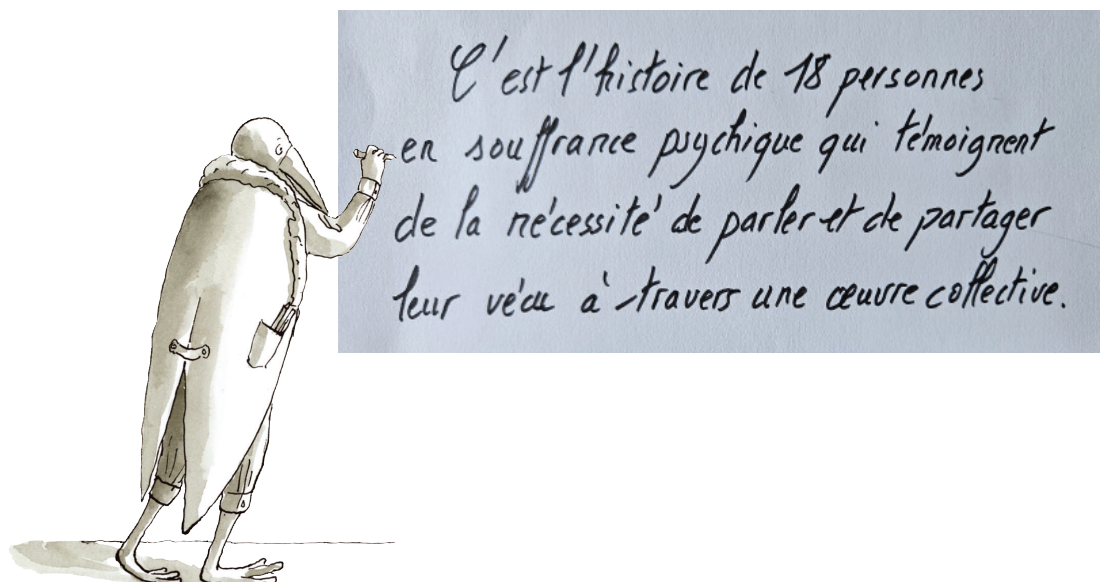 C'est l'histoire de 18 personnes
en souffrance psychique qui témoignent
de la nécessité de parler et de partager
leur vécu à travers une œuvre collective.